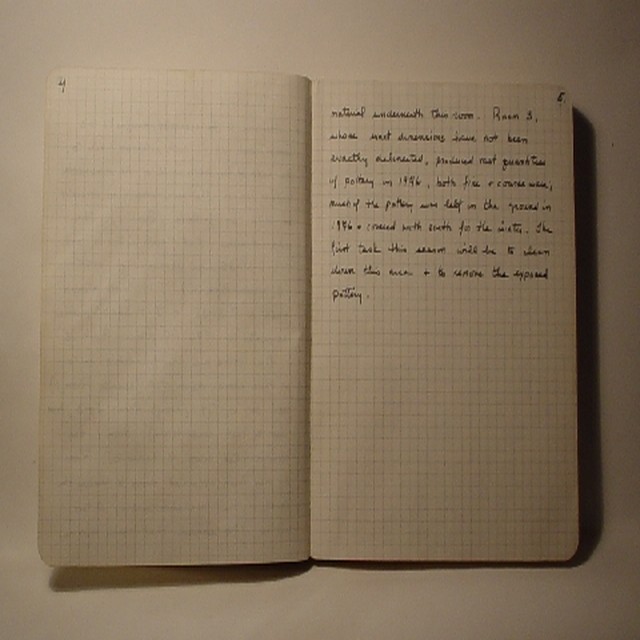 4
5
material underneath this room. Room 3,
whose exact dimensions have not been
exactly delineated, produced vast quantities
of pottery in 1976, both fine + coarse ware;
much of the pottery was left in the ground in
1976 + covered with earth for the winter. The
first task this season will be to clean
down this area + to remove the exposed
pottery.